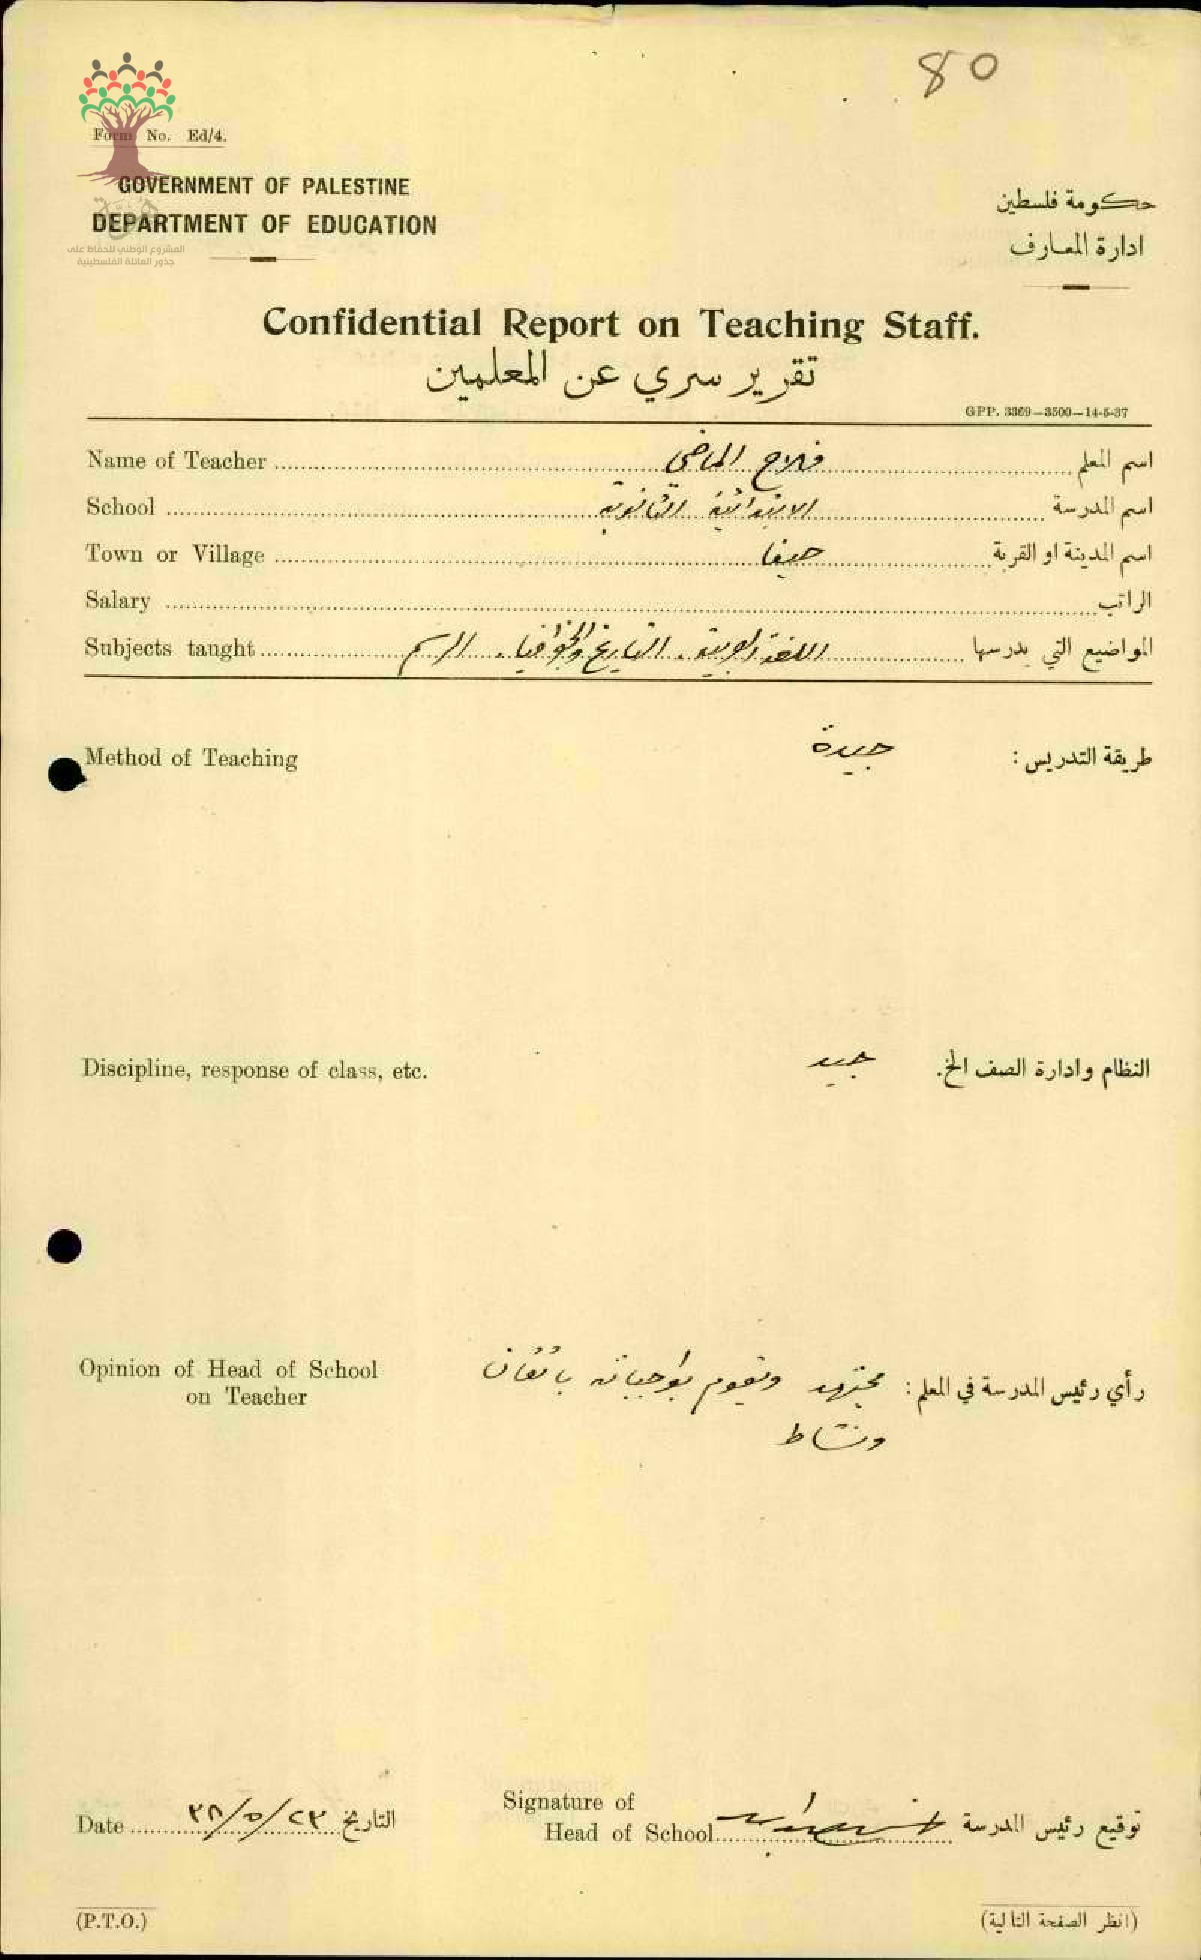 80
Form No. Ed/4.
GOVERNMENT OF PALESTINE
DEPARTMENT OF EDUCATION
حكومة فلسطين
ادارة المعارف
هوية
المشروع الوطني للحفاظ على
جذور العائلة الفلسطينية
Confidential Report on Teaching Staff.
تقرير سري عن المعلمين
GPP. 3369—3500—14-5-37
Name of Teacher فلاح الماضي اسم المعلم
School الابتدائية الثانوية اسم المدرسة
Town or Village حيفا اسم المدينة او القرية
Salary الراتب
Subjects taught اللغة العربية. التاريخ والجغرافيا. الرسم المواضيع التي يدرسها
Method of Teaching جيدة طريقة التدريس :
Discipline, response of class, etc. جيد النظام وادارة الصف الخ.
Opinion of Head of School مجتهد ويقوم بواجباته باتقان رأي رئيس المدرسة في المعلم :
on Teacher
ونشاط
Signature of
Date ٢٣/٥/٣٨ التاريخ Head of School توقيع رئيس المدرسة
(P.T.O.) (انظر الصفحة التالية)